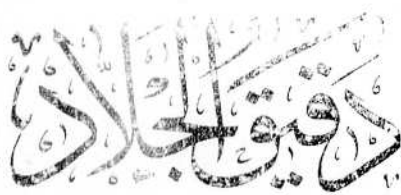 دقيق الجلاد